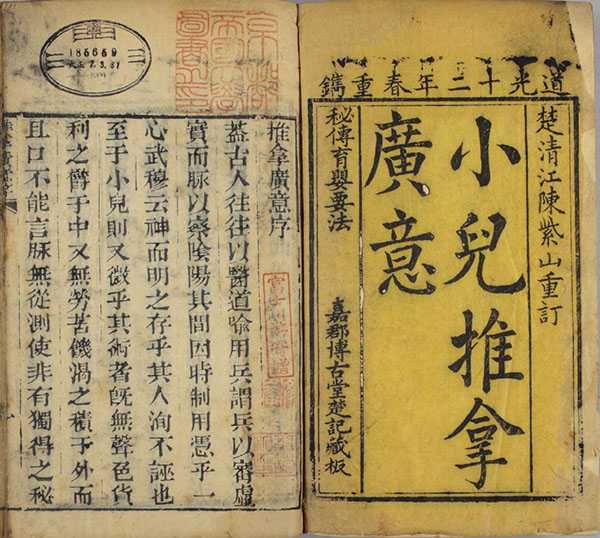 道光十二年春重鐫
楚清江陳紫山重訂
小兒推拿
廣意
秘傳育嬰要法
嘉郡博古堂楚記藏板
推拿廣意序
蓋古人往往以醫道喻用兵謂兵以審虛
實而脉以察陰陽其間因時制用憑乎一
心武穆云神而明之存乎其人洵不誣也
至于小兒則又微乎其術者旣無聲色貨
利之欝于中又無勞苦饑渴之積于外而
且口不能言脉無從測使非有獨得之秘
京都
帝國大學
圖書之印
185659
大正7.3.31